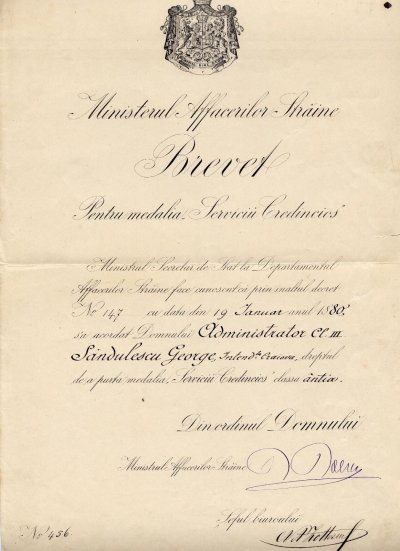 Ministerul Affacerilor Străine
Brevet
Pentru medalia „Serviciŭ Credincios"
Ministrul Secretar de Stat la Departamentul
Affacerilor Străine face cunoscut că prin înaltul decret
No 147 cu data din 19 Ianuar anul 1880,
s'a acordat Domnului Administrator cl. III
Săndulescu George, Intend.ța Craiova, dreptul
de a purta medalia „Serviciŭ Credincios" classa ântéia.
Din ordinul Domnului
Ministrul Affacerilor Străine
Șeful biuroului
No 456